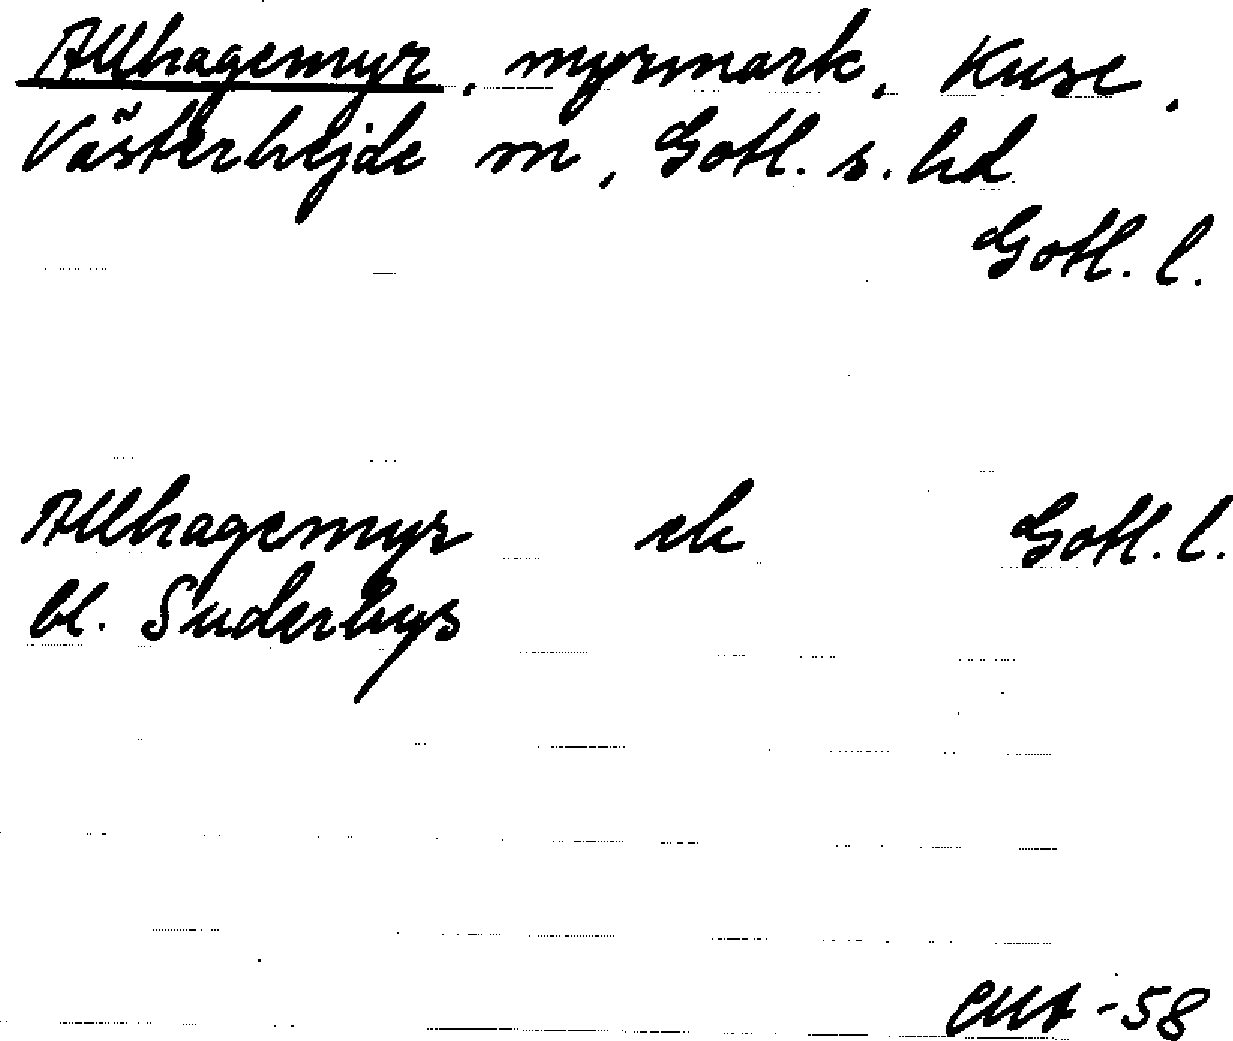 Allhagemyr, myrmark, Kuse,
Västerhejde sn, Gotl. s. hd
Gotl. l.
Allhagemyr ek Gotl. l.
bl. Suderbys
CMA -58